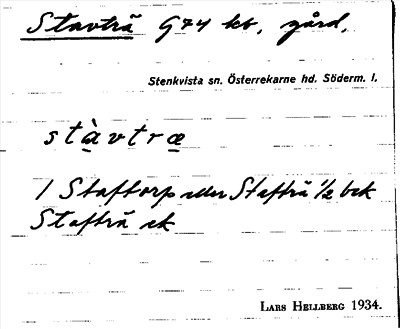 Stavträ G 74 kb, gård,
Stenkvista sn. Österrekarne hd. Söderm. l.
stàvtræ
1 Staftorp eller Stafträ 1/2 bek
Stafträ ek
LARS HELLBERG 1934.